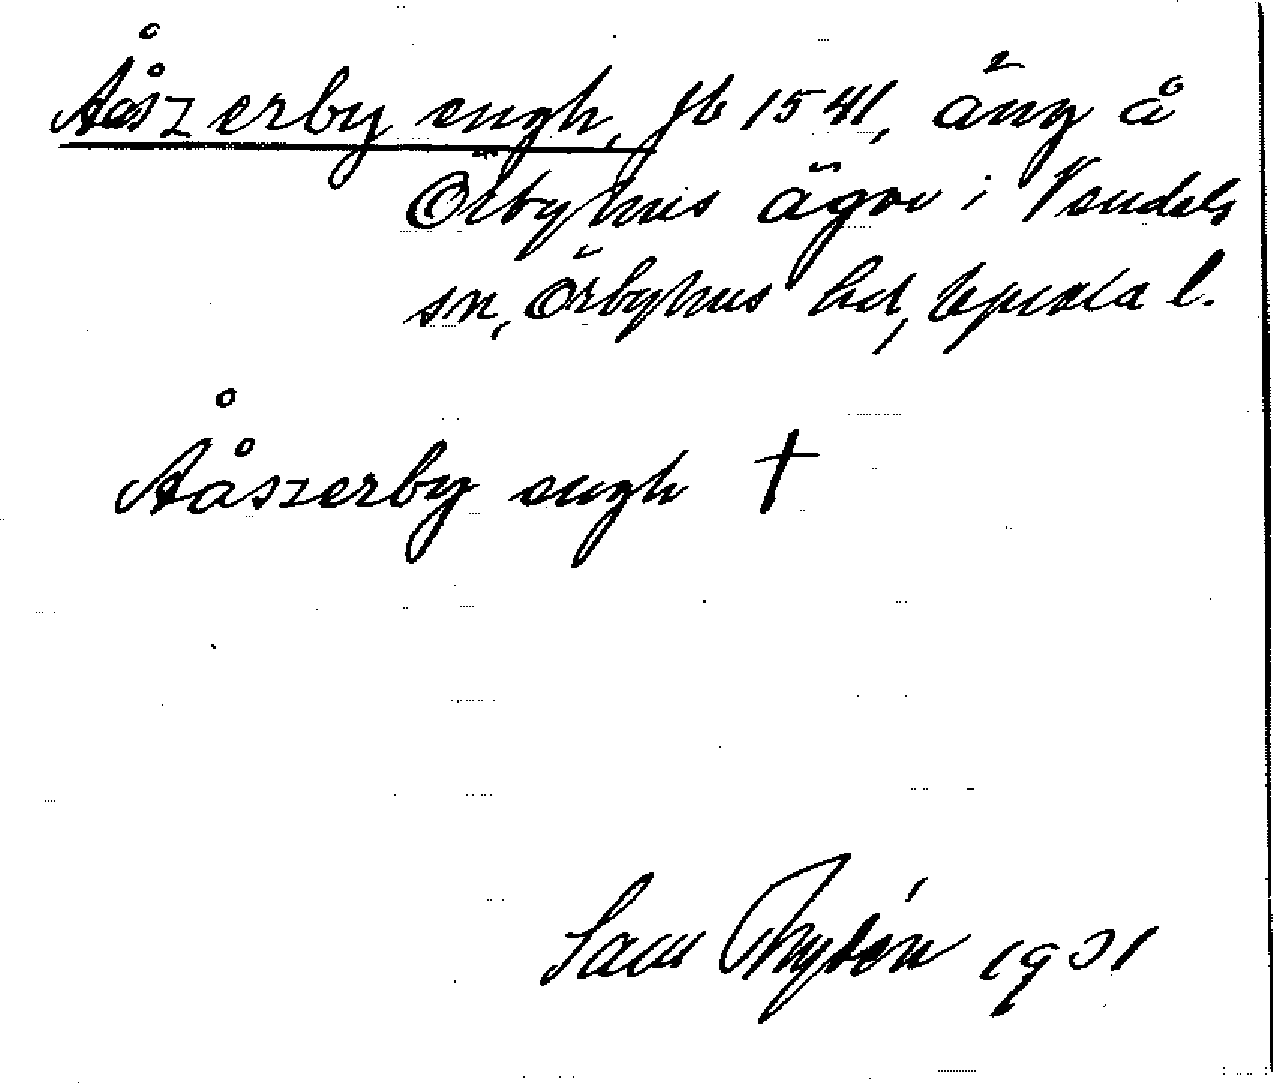 Ååszerby engh, jb 1541, äng å
Örbyhus ägor i Vendels
sn, Örbyhus hd, Upsala l.
Ååszerby engh †
1931